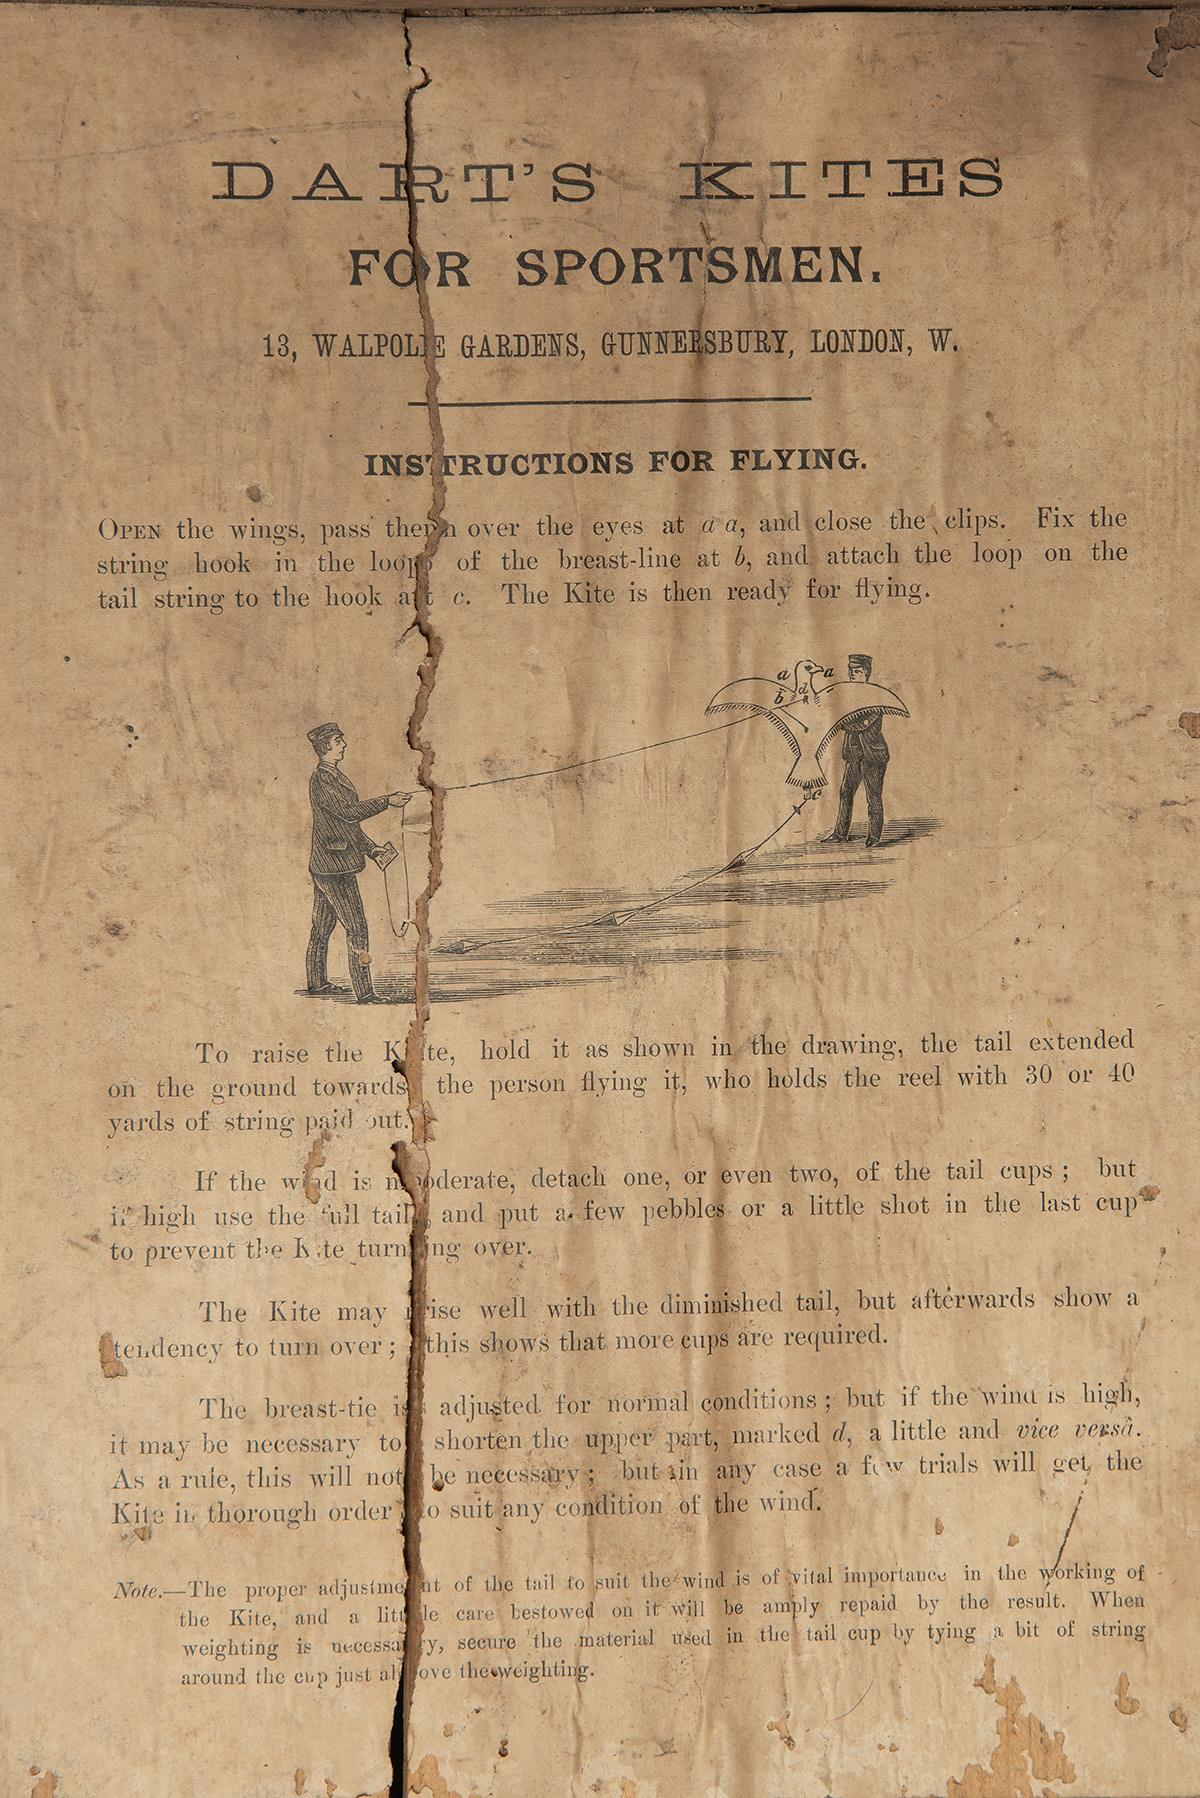 DART'S KITES
FOR SPORTSMEN.
13, WALPOLE GARDENS, GUNNERSBURY, LONDON, W.
INSTRUCTIONS FOR FLYING.
OPEN the wings, pass them over the eyes at a a, and close the clips. Fix the
string hook in the loop of the breast-line at b, and attach the loop on the
tail string to the hook at c. The Kite is then ready for flying.
a a
d
b
c
To raise the Kite, hold it as shown in the drawing, the tail extended
on the ground towards the person flying it, who holds the reel with 30 or 40
yards of string paid out.
If the wind is moderate, detach one, or even two, of the tail cups; but
if high use the full tail, and put a few pebbles or a little shot in the last cup
to prevent the Kite turning over.
The Kite may rise well with the diminished tail, but afterwards show a
tendency to turn over; this shows that more cups are required.
The breast-tie is adjusted for normal conditions; but if the wind is high,
it may be necessary to shorten the upper part, marked d, a little and vice versâ.
As a rule, this will not be necessary; but in any case a few trials will get the
Kite in thorough order to suit any condition of the wind.
Note.—The proper adjustment of the tail to suit the wind is of vital importance in the working of
the Kite, and a little care bestowed on it will be amply repaid by the result. When
weighting is necessary, secure the material used in the tail cup by tying a bit of string
around the cup just above the weighting.